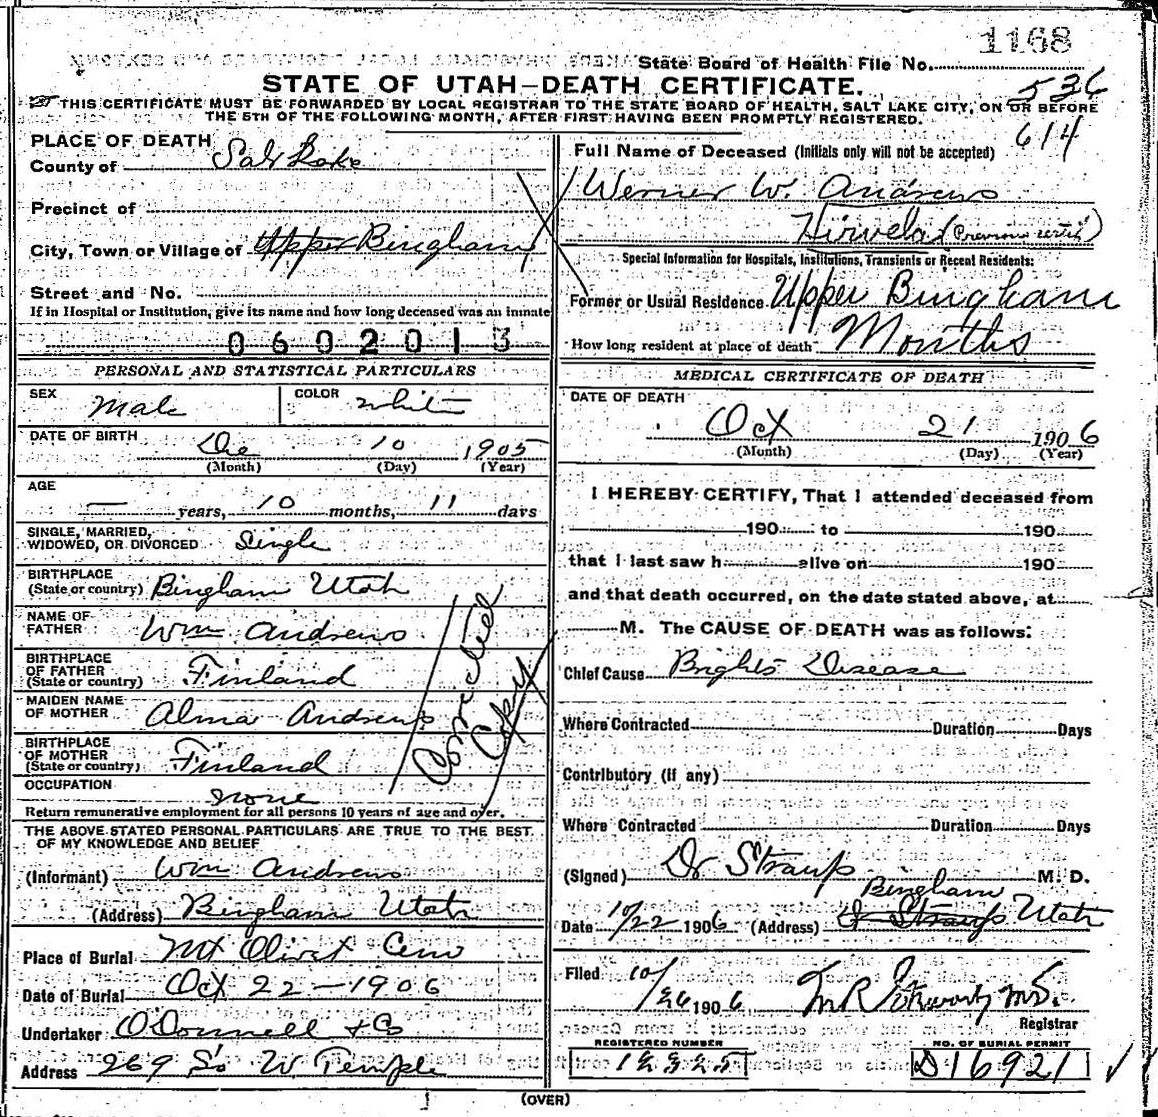 1168
State Board of Health File No.
STATE OF UTAH—DEATH CERTIFICATE.
536
THIS CERTIFICATE MUST BE FORWARDED BY LOCAL REGISTRAR TO THE STATE BOARD OF HEALTH, SALT LAKE CITY, ON OR BEFORE
THE 5TH OF THE FOLLOWING MONTH, AFTER FIRST HAVING BEEN PROMPTLY REGISTERED.
614
PLACE OF DEATH
County of Salt Lake
Precinct of
City, Town or Village of Upper Bingham
Street and No.
If in Hospital or Institution, give its name and how long deceased was an inmate
0602013
PERSONAL AND STATISTICAL PARTICULARS
SEX Male COLOR White
DATE OF BIRTH Dec 10 1905
(Month) (Day) (Year)
AGE
— years, 10 months, 11 days
SINGLE, MARRIED,
WIDOWED, OR DIVORCED Single
BIRTHPLACE
(State or country) Bingham Utah
NAME OF
FATHER Wm Andrews
BIRTHPLACE
OF FATHER
(State or country) Finland
MAIDEN NAME
OF MOTHER Alma Andrews
BIRTHPLACE
OF MOTHER
(State or country) Finland
Corrected
Copy
OCCUPATION none
Return remunerative employment for all persons 10 years of age and over.
THE ABOVE STATED PERSONAL PARTICULARS ARE TRUE TO THE BEST
OF MY KNOWLEDGE AND BELIEF
(Informant) Wm Andrews
(Address) Bingham Utah
Place of Burial Mt Olivet Cem
Date of Burial Oct 22—1906
Undertaker O'Donnell & Co
Address 269 So W. Temple
Full Name of Deceased (Initials only will not be accepted)
Werner W. Andrews
Hirvela (Previous certif)
Special Information for Hospitals, Institutions, Transients or Recent Residents:
Former or Usual Residence Upper Bingham
How long resident at place of death Months
MEDICAL CERTIFICATE OF DEATH
DATE OF DEATH
Oct 21 1906
(Month) (Day) (Year)
I HEREBY CERTIFY, That I attended deceased from
190 to 190
that I last saw h alive on 190
and that death occurred, on the date stated above, at
M. The CAUSE OF DEATH was as follows:
Chief Cause Brights Disease
Where Contracted Duration Days
Contributory (if any)
Where Contracted Duration Days
(Signed) Dr Straup M. D.
Bingham
Date 10/22 1906 (Address) Straup Utah
Filed 10/26 1906
Registrar
REGISTERED NUMBER NO. OF BURIAL PERMIT
D16921
(OVER)